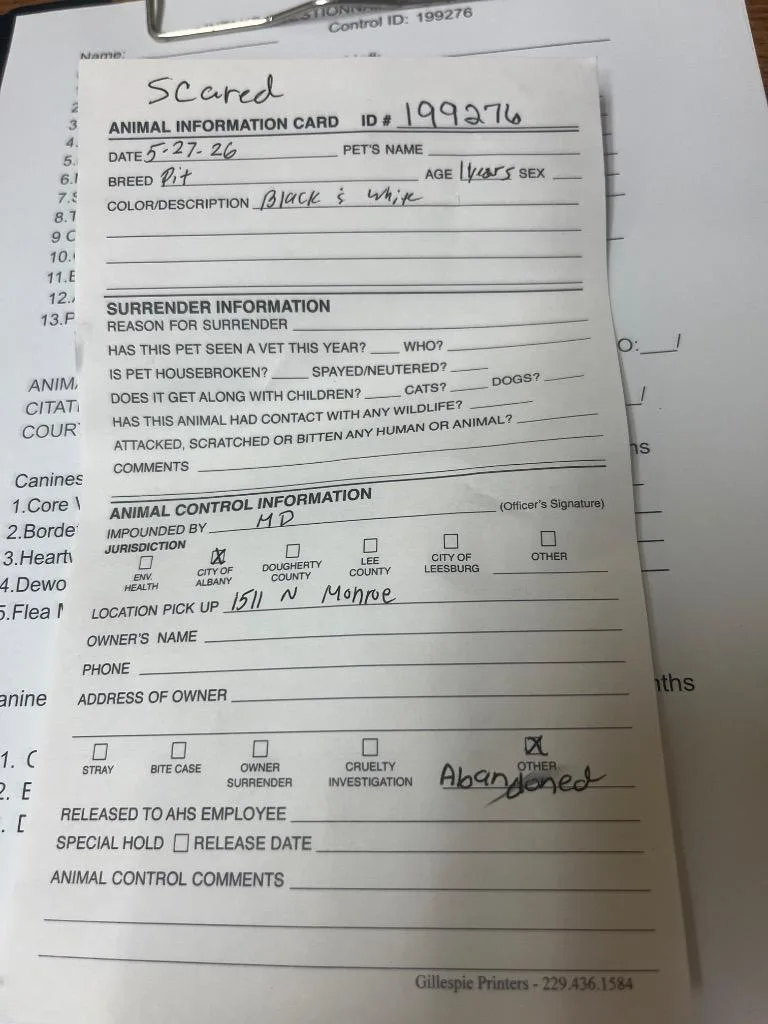 Control ID: 199276
Name:
Scared
ANIMAL INFORMATION CARD ID # 199276
DATE 5-27-26 PET'S NAME
BREED Pit AGE 1 years SEX
COLOR/DESCRIPTION Black & White
SURRENDER INFORMATION
REASON FOR SURRENDER
HAS THIS PET SEEN A VET THIS YEAR? WHO?
IS PET HOUSEBROKEN? SPAYED/NEUTERED?
DOES IT GET ALONG WITH CHILDREN? CATS? DOGS?
HAS THIS ANIMAL HAD CONTACT WITH ANY WILDLIFE?
ATTACKED, SCRATCHED OR BITTEN ANY HUMAN OR ANIMAL?
COMMENTS
ANIMAL CONTROL INFORMATION
IMPOUNDED BY MD (Officer's Signature)
JURISDICTION
ENV. HEALTH
CITY OF ALBANY
DOUGHERTY COUNTY
LEE COUNTY
CITY OF LEESBURG
OTHER
LOCATION PICK UP 1511 N Monroe
OWNER'S NAME
PHONE
ADDRESS OF OWNER
STRAY
BITE CASE
OWNER SURRENDER
CRUELTY INVESTIGATION
OTHER
Abandoned
RELEASED TO AHS EMPLOYEE
SPECIAL HOLD RELEASE DATE
ANIMAL CONTROL COMMENTS
Gillespie Printers - 229.436.1584
Canines